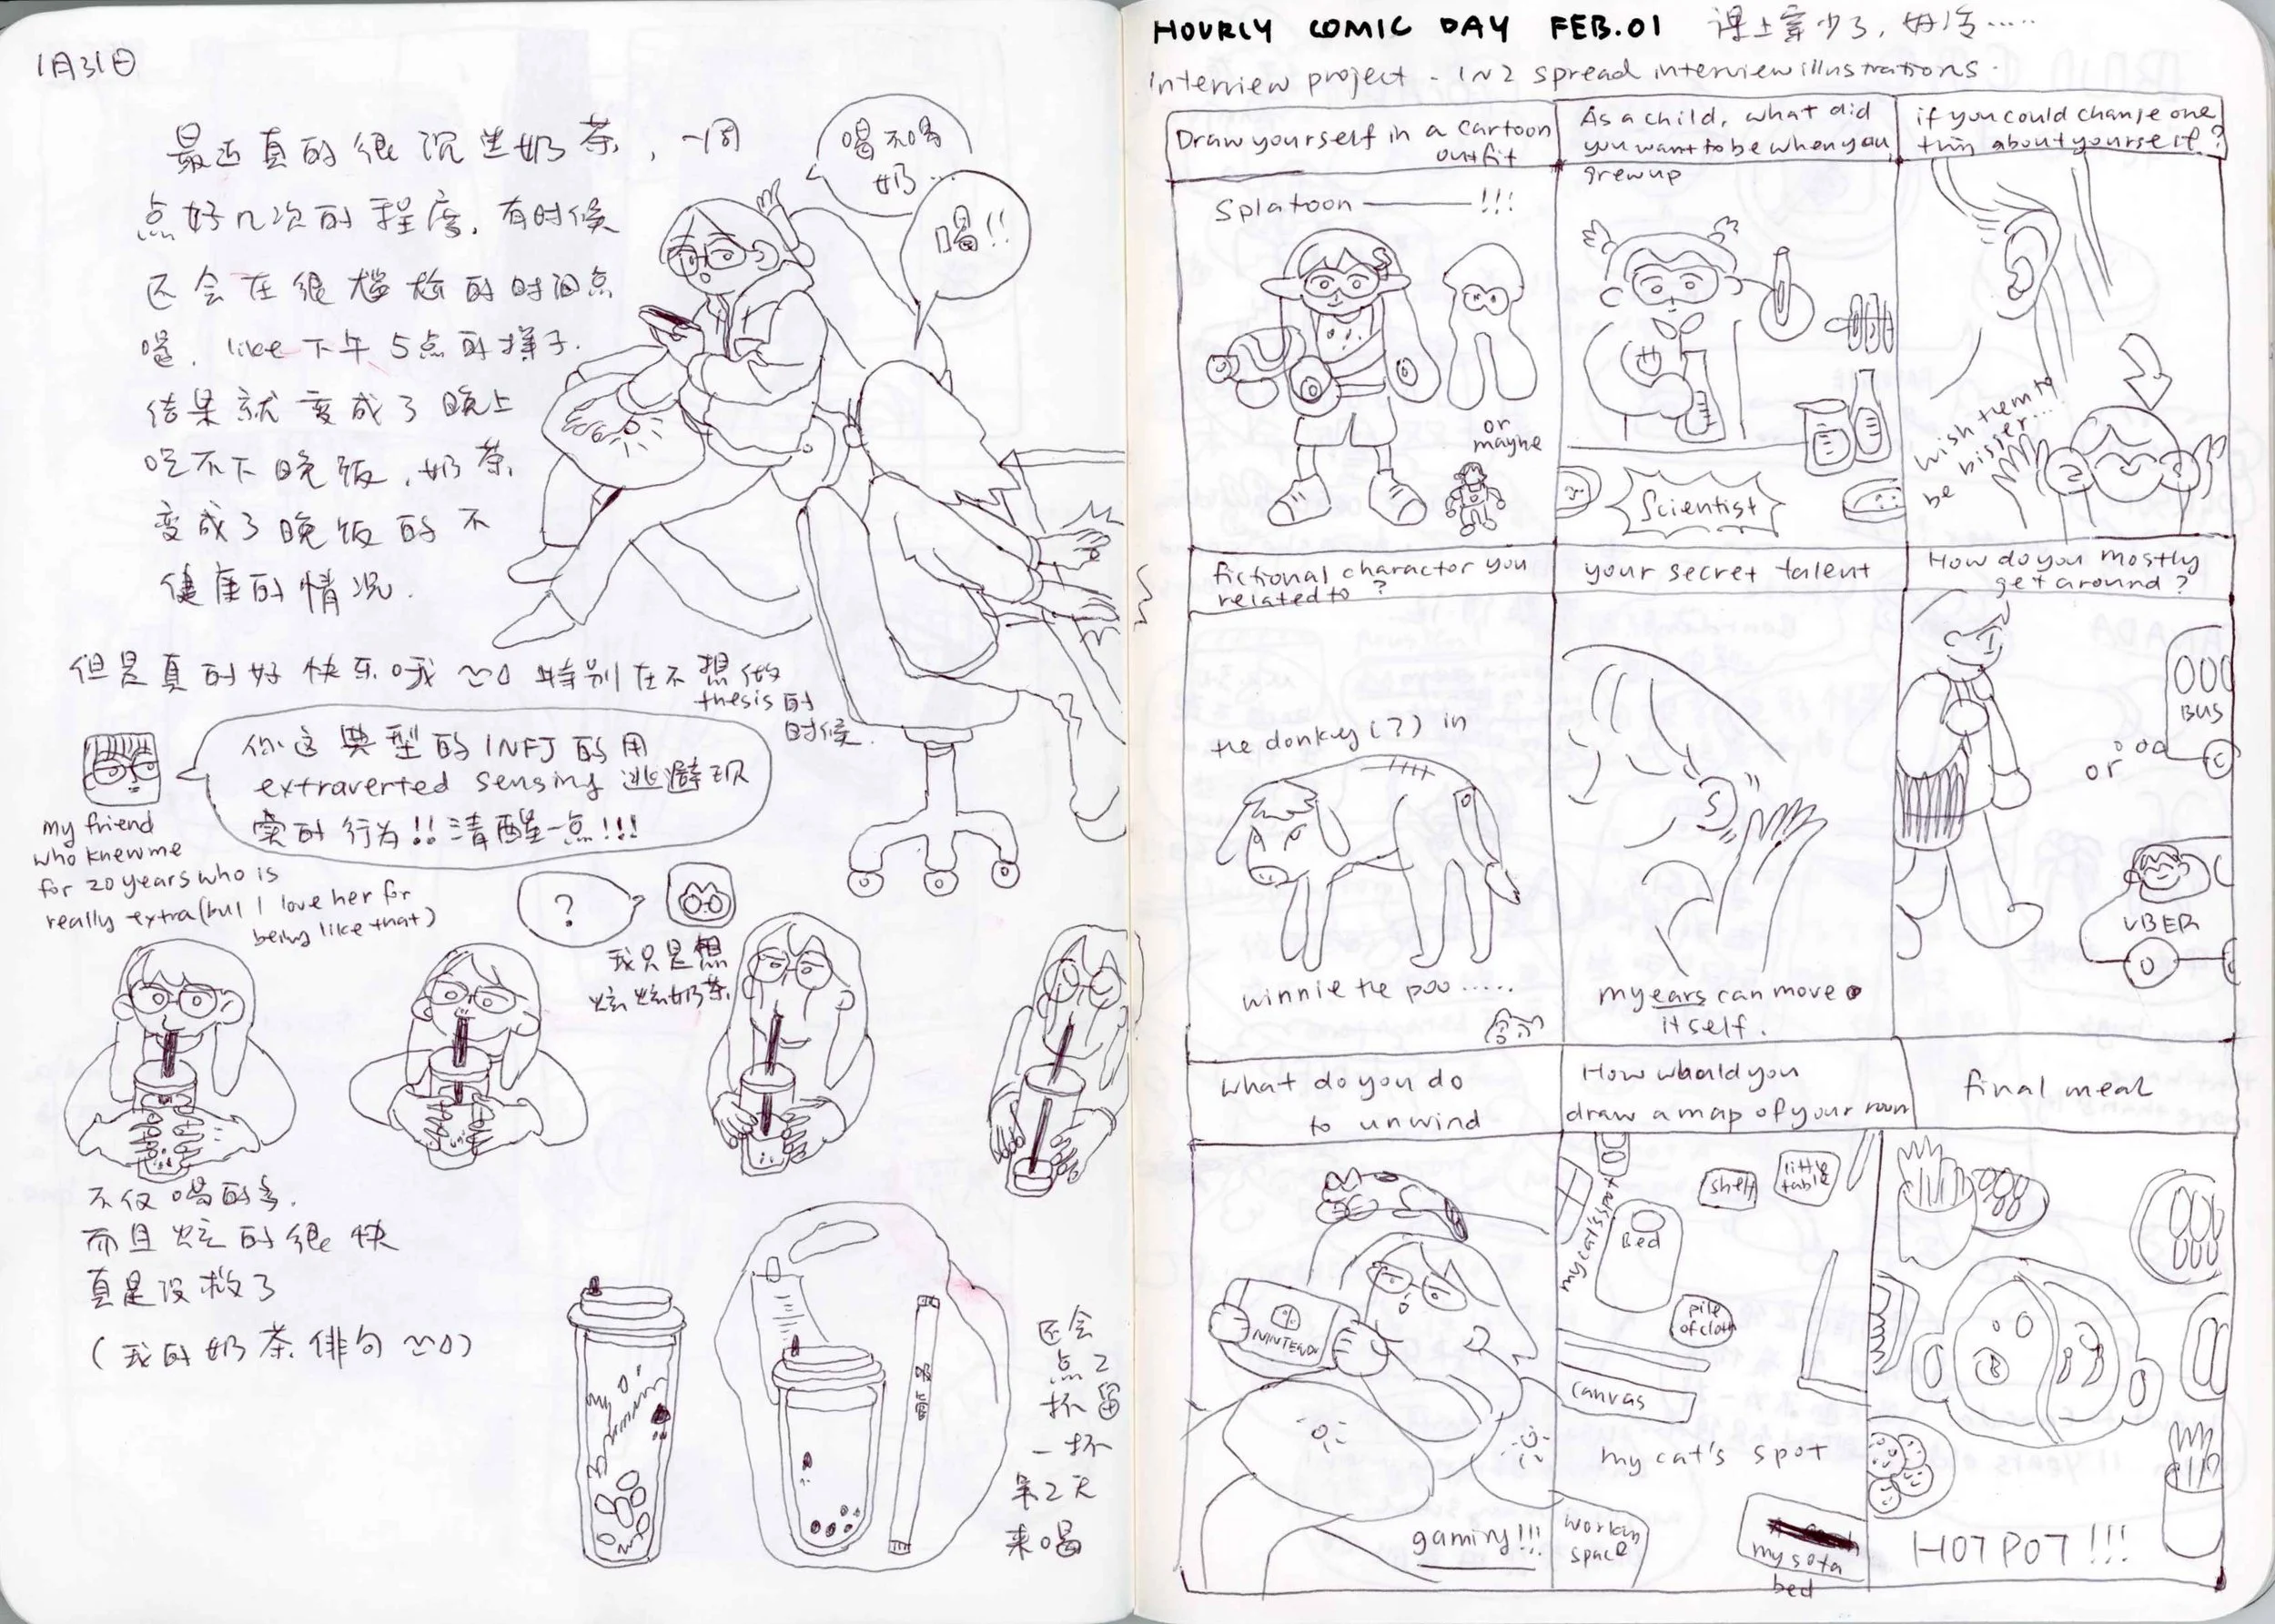 1月31日
最近真的很沉迷奶茶，一周
点好几次的程度，有时候
还会在很尴尬的时间点
喝，like 下午5点的样子.
结果就变成了晚上
吃不下晚饭，奶茶
变成了晚饭的不
健康的情况.
喝不喝
奶…
喝!!
但是真的好快乐哦 特别在不想做
thesis的
时候.
你这典型的INFJ的用
extraverted sensing 逃避现
实的行为!!清醒一点!!!
my friend
who knew me
for 20 years who is
really extra (but I love her for
being like that)
?
我只是想
炫炫奶茶.
不仅喝的多.
而且炫的很快
真是没救了
(我的奶茶俳句
还会
点2
杯留
一杯
第2天
来喝
HOURLY COMIC DAY FEB.01 课上穿少了，好冷……
Interview project - 1~2 spread interview illustrations.
Draw yourself in a cartoon
outfit
Splatoon ———— !!!
or
maybe
As a child, what did
you want to be when you
grew up
Scientist
if you could change one
thin about yourself?
wish them to
be bigger...
fictional charactor you
related to?
the donkey (?) in
winnie the poo .....
your secret talent
my ears can move
itself.
How do you mostly
get around?
BUS
or
UBER
What do you do
to unwind
NINTENDO
gaming!!!
How would you
draw a map of your room
my cat's spot
Bed
shelf
little
table
pile
of cloth
canvas
my cat's spot
workin
space
my sofa
bed
final meal
HOT POT!!!